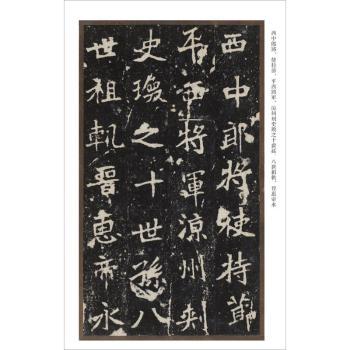 西中郎將、使持節、平西將軍、涼州刺史瑍之十世孫。八世祖軌，晉惠帝永
西中郎將使持節
平西將軍涼州刺
史瑍之十世孫八
世祖軌晉惠帝永